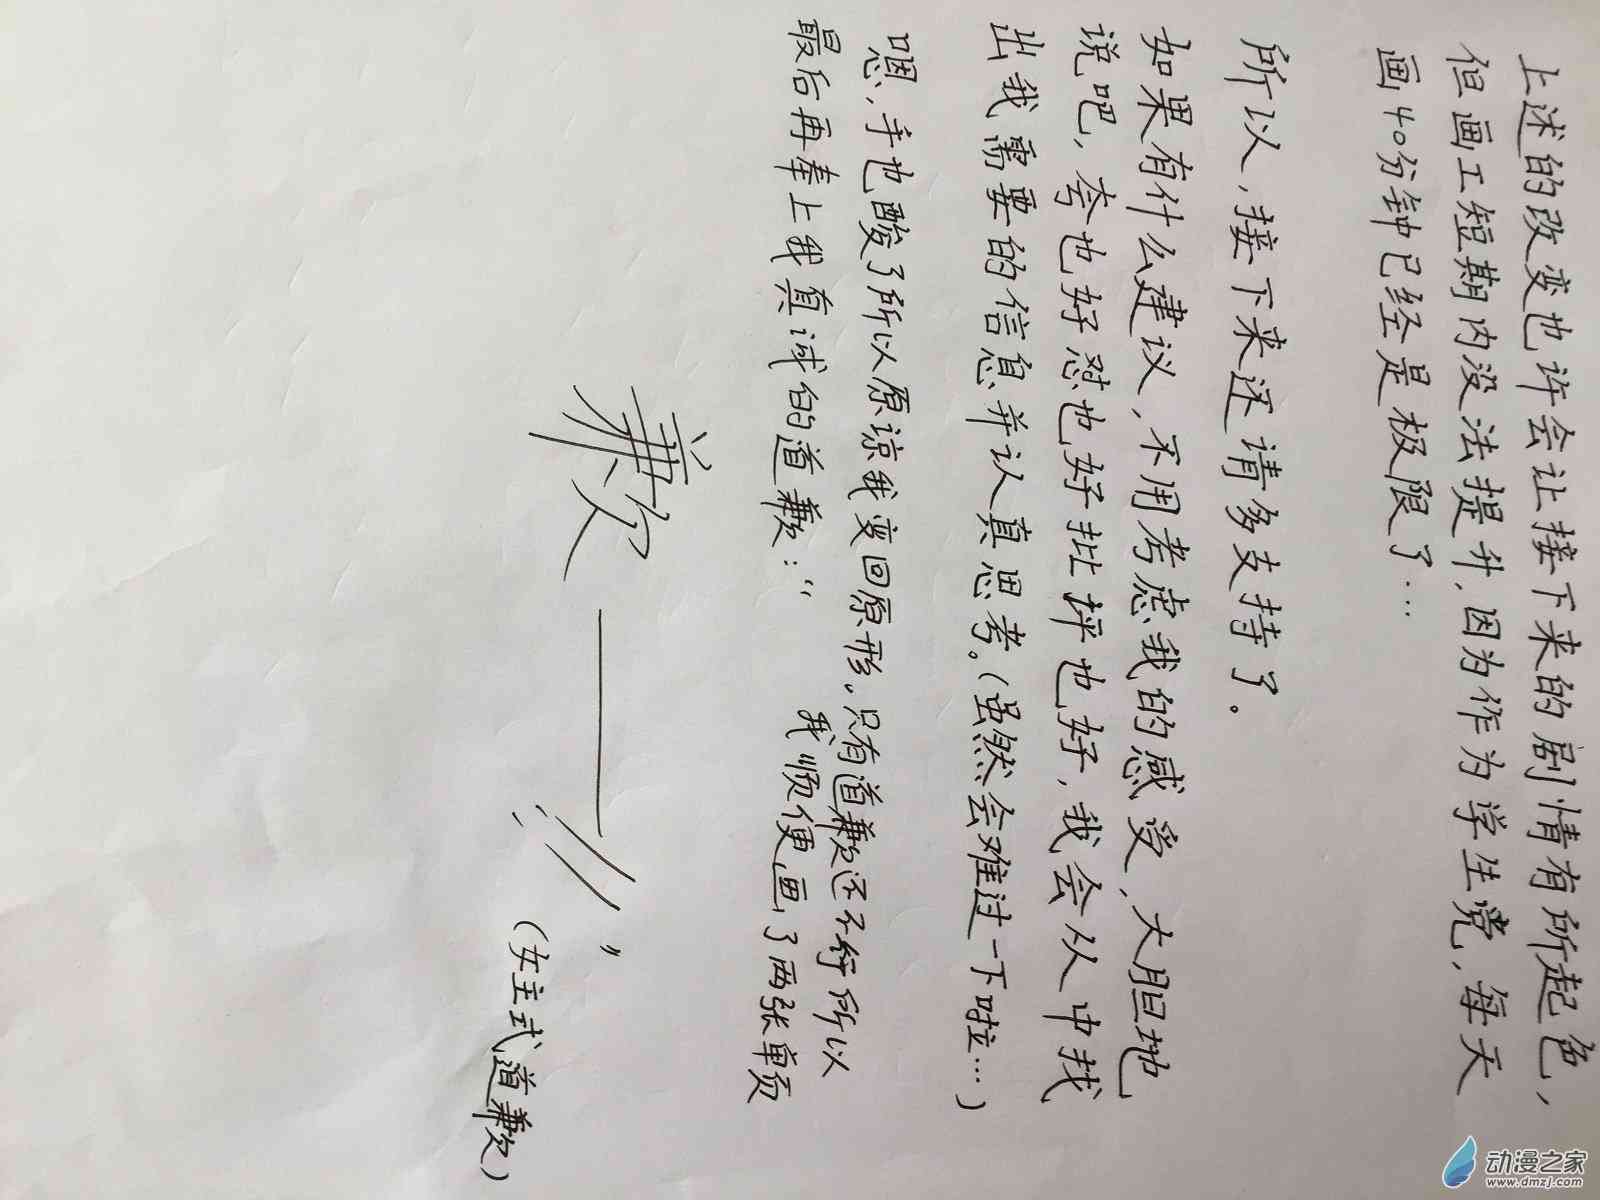 上述的改变也许会让接下来的剧情有所起色,
但画工短期内没法提升,因为作为学生党,每天
画40分钟已经是极限了…
所以,接下来还请多支持了。
如果有什么建议,不用考虑我的感受,大胆地
说吧,夸也好怼也好批评也好,我会从中找
出我需要的信息并认真思考。(虽然会难过一下啦…)
嗯,手也酸了所以原谅我变回原形,只有道歉还不行所以
我顺便画了两张单页
最后再奉上我真诚的道歉:“
歉——//”
(女主式道歉)
动漫之家
www.dmzj.com